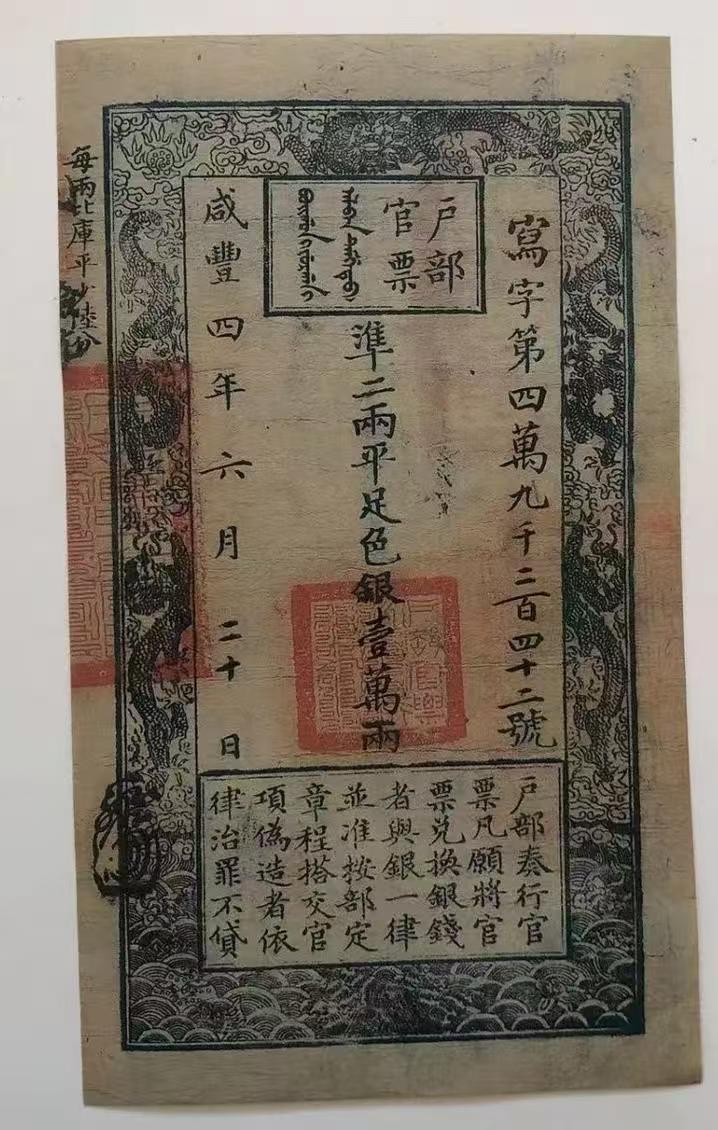 寫字第四萬九千二百四十二號
户部
官票
準二兩平足色銀壹萬兩
咸豐四年六月二十日
每兩比庫平少陸分
户部奏行官
票凡願將官
票兑換銀錢
者與銀一律
並准按部定
章程搭交官
項偽造者依
律治罪不貸